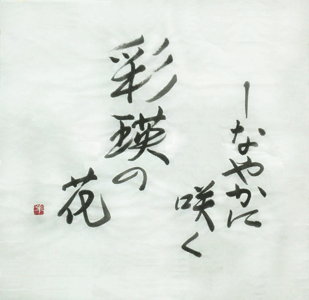 しなやかに
咲く
彩瑛の
花